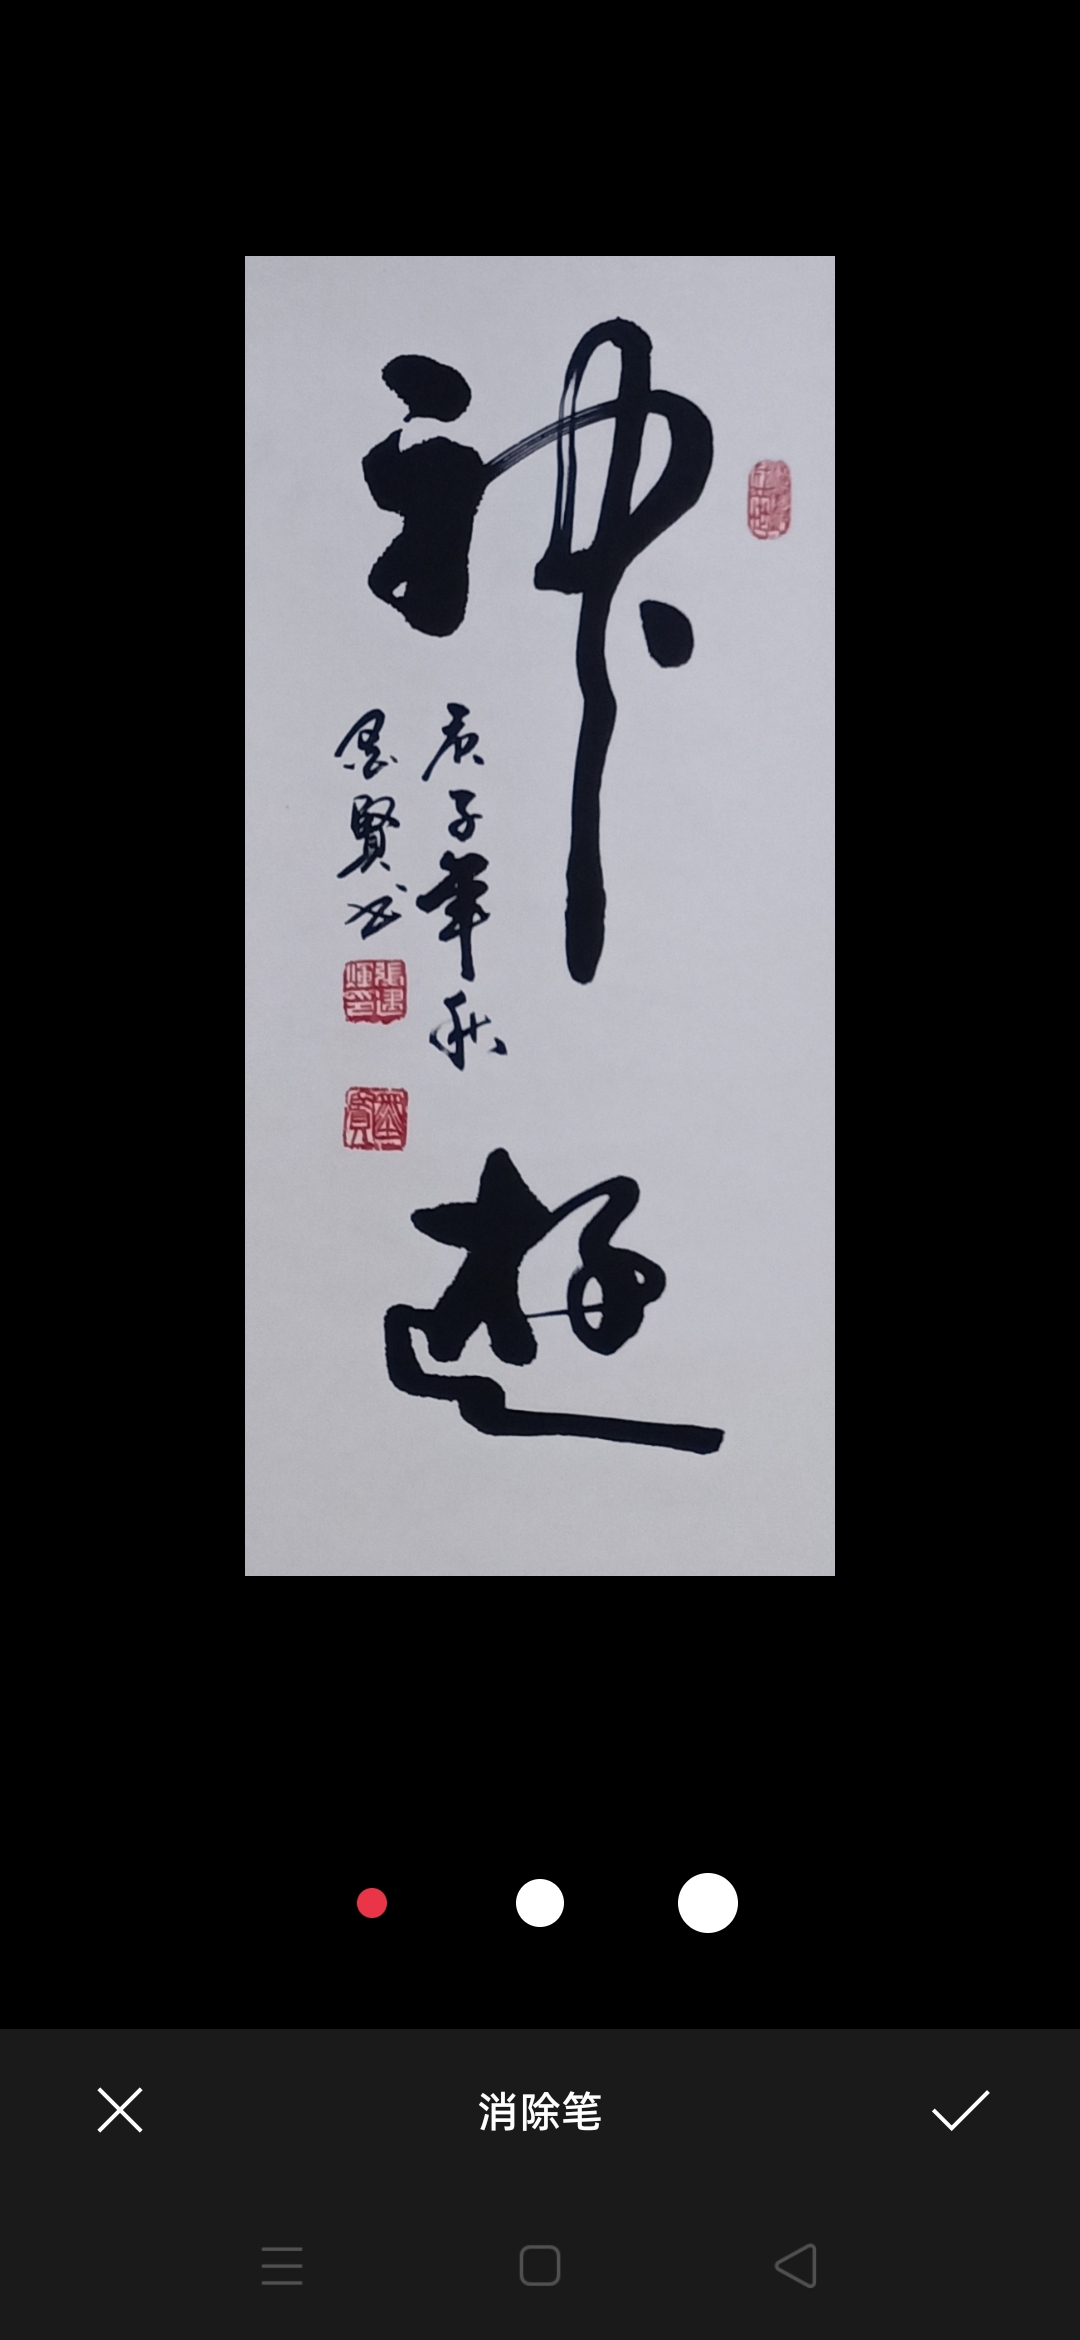 神遊
庚子年秋
墨賢书
消除笔